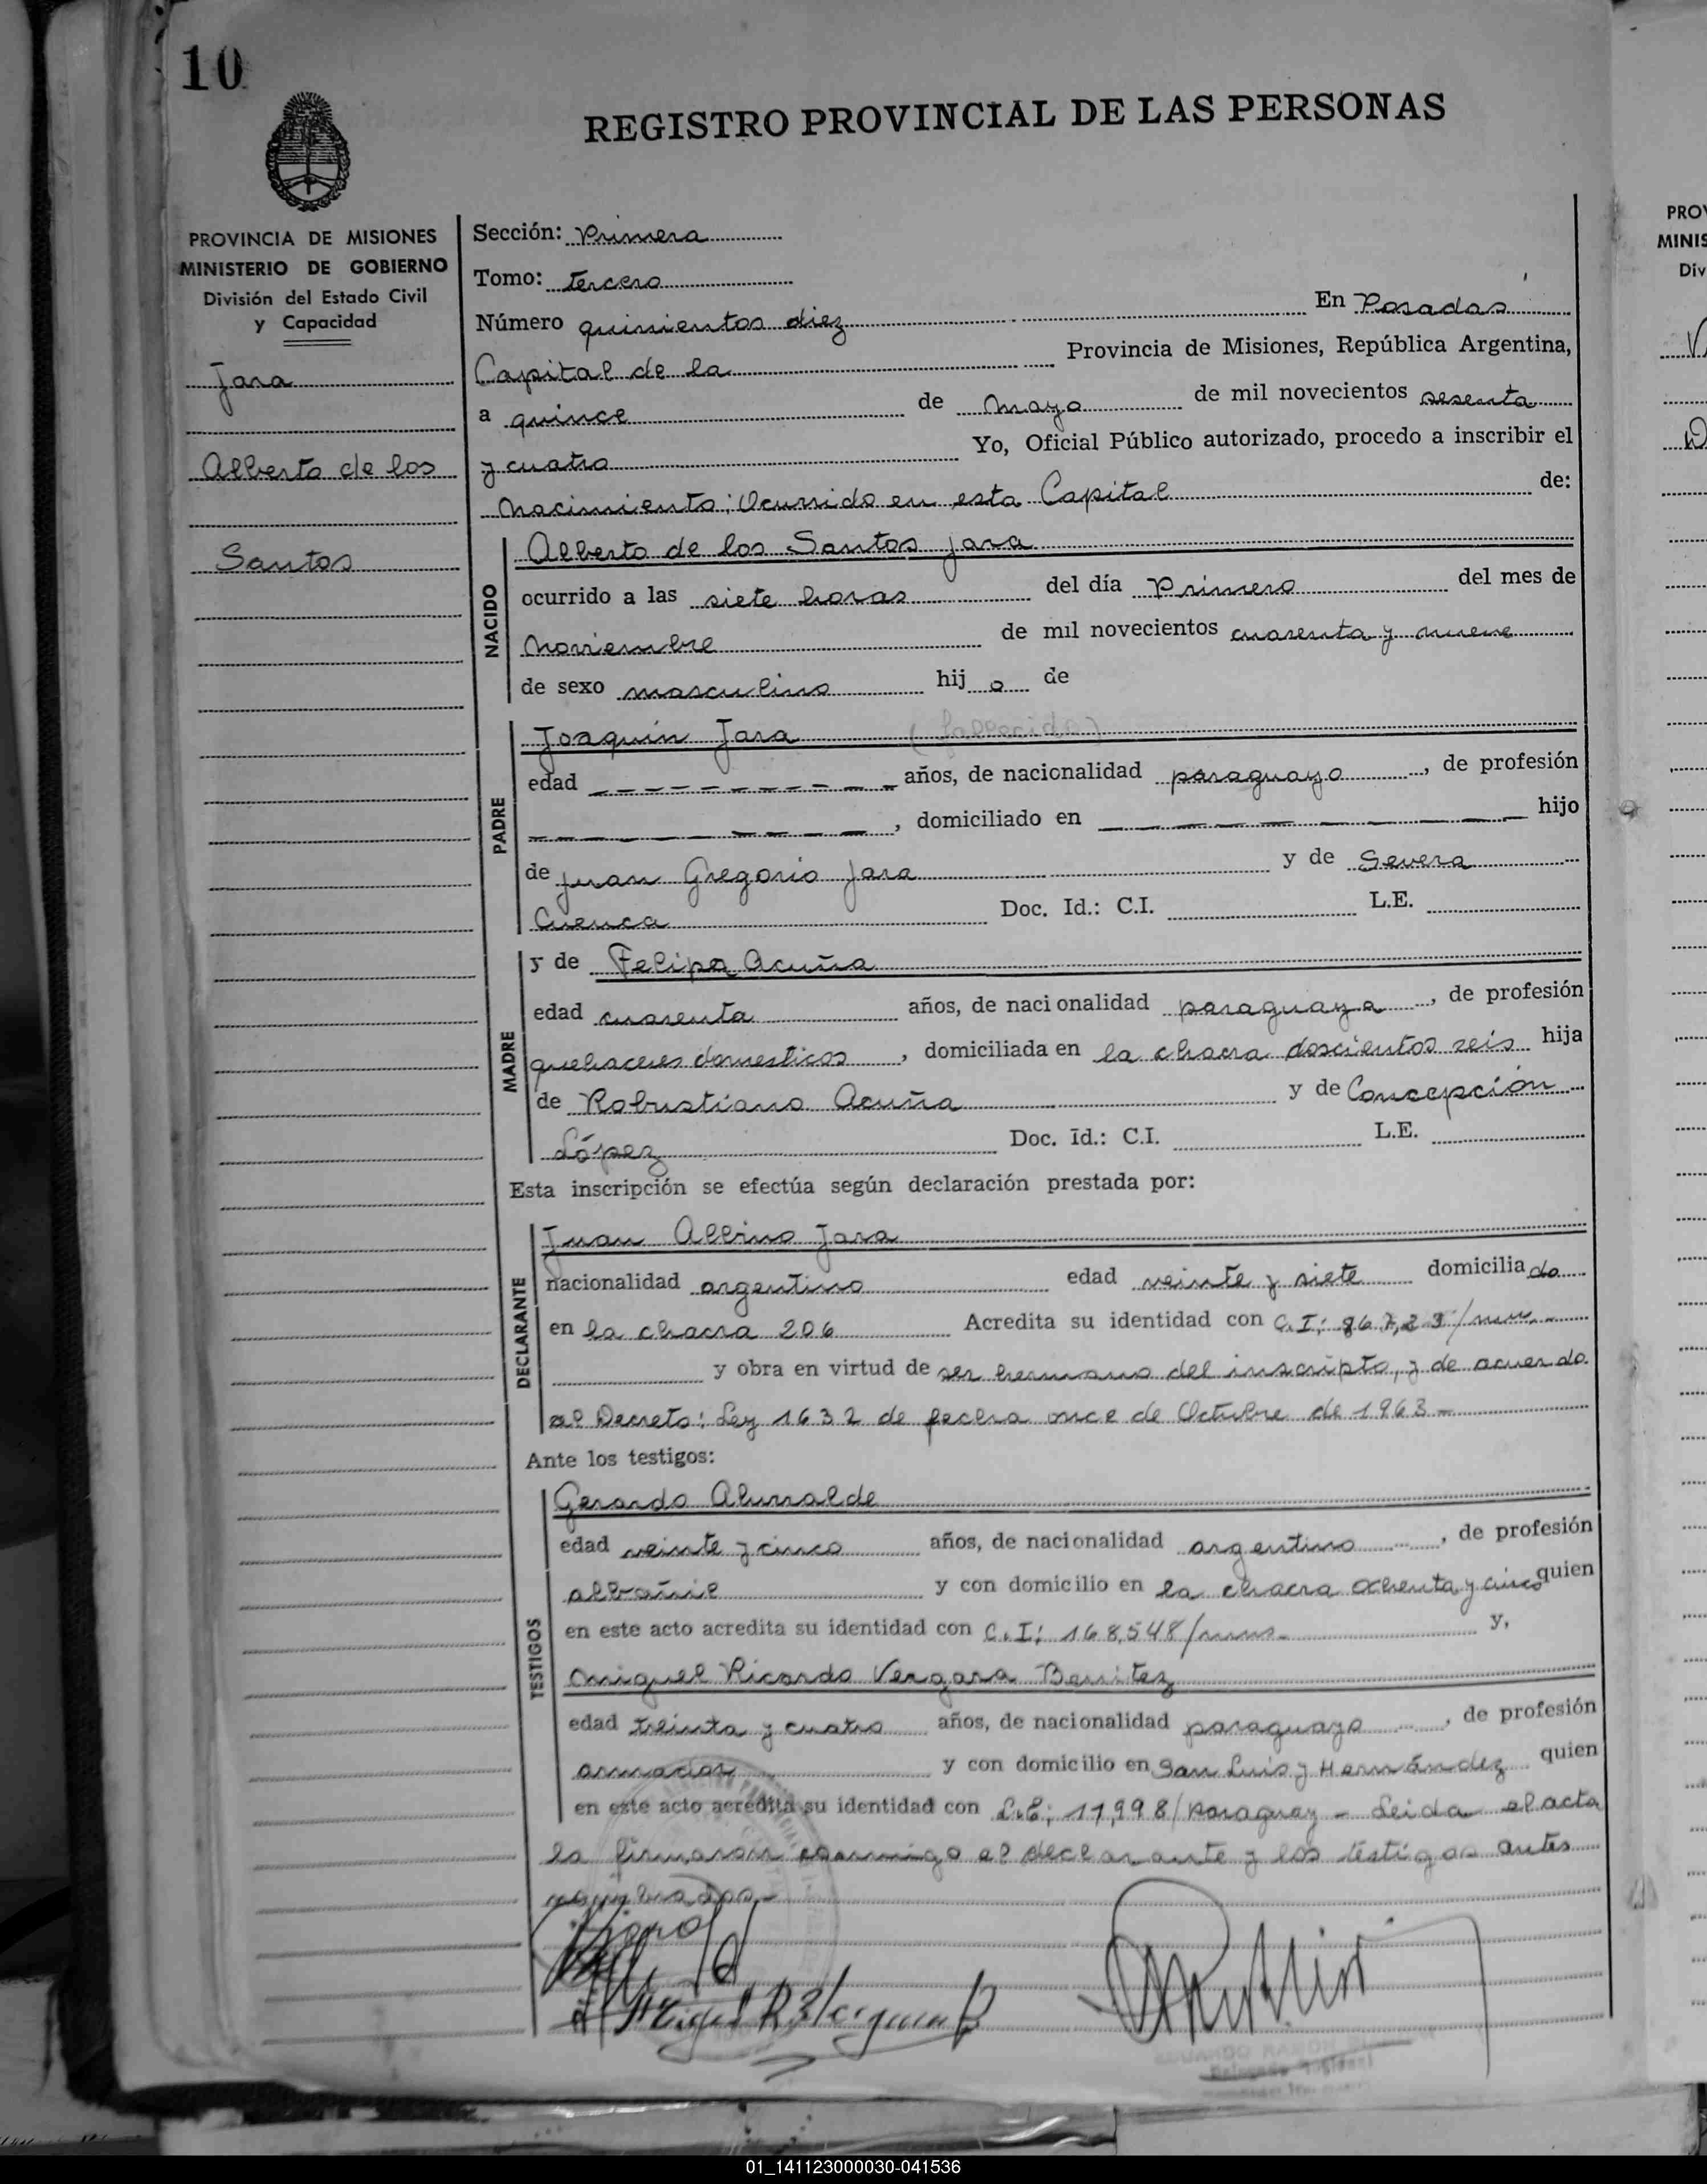 10
REGISTRO PROVINCIAL DE LAS PERSONAS
PROVINCIA DE MISIONES
MINISTERIO DE GOBIERNO
División del Estado Civil
y Capacidad
Jara
Alberto de los
Santos
Sección: Primera
Tomo: tercero
Número quinientos diez En Posadas
Capital de la Provincia de Misiones, República Argentina,
a quince de Mayo de mil novecientos sesenta
y cuatro Yo, Oficial Público autorizado, procedo a inscribir el
Nacimiento; Ocurrido en esta Capital de:
NACIDO
Alberto de los Santos Jara
ocurrido a las siete horas del día Primero del mes de
Noviembre de mil novecientos cuarenta y nueve
de sexo masculino hij o de
PADRE
Joaquín Jara (fallecido)
edad años, de nacionalidad paraguayo, de profesión
, domiciliado en hijo
de Juan Gregorio Jara y de Severa
Cuenca Doc. Id.: C.I. L.E.
MADRE
y de Felipa Acuña
edad cuarenta años, de naci onalidad paraguaya, de profesión
quehaceres domesticos, domiciliada en la chacra doscientos seis hija
de Robustiano Acuña y de Concepción
López Doc. Id.: C.I. L.E.
Esta inscripción se efectúa según declaración prestada por:
DECLARANTE
Juan Albino Jara
nacionalidad argentino edad veinte y siete domicilia do
en la chacra 206 Acredita su identidad con C.I:
y obra en virtud de ser hermano del inscripto, y de acuerdo
al Decreto: Ley 1632 de fecha once de Octubre de 1963 -
Ante los testigos:
TESTIGOS
Gerardo Alurralde
edad veinte y cinco años, de nacionalidad argentino, de profesión
albañil y con domicilio en la chacra ochenta y cinco quien
en este acto acredita su identidad con C.I: 168,548/mnes.- y,
Miguel Ricardo Vergara Benitez
edad treinta y cuatro años, de nacionalidad paraguayo, de profesión
armador y con domicilio en San Luis y Hernández quien
en este acto acredita su identidad con 11,998/Paraguay - Leida el acta
la firmaron conmigo el declarante y los testigos antes
nombrados.-
PROV
MINIS
Div
01_141123000030-041536